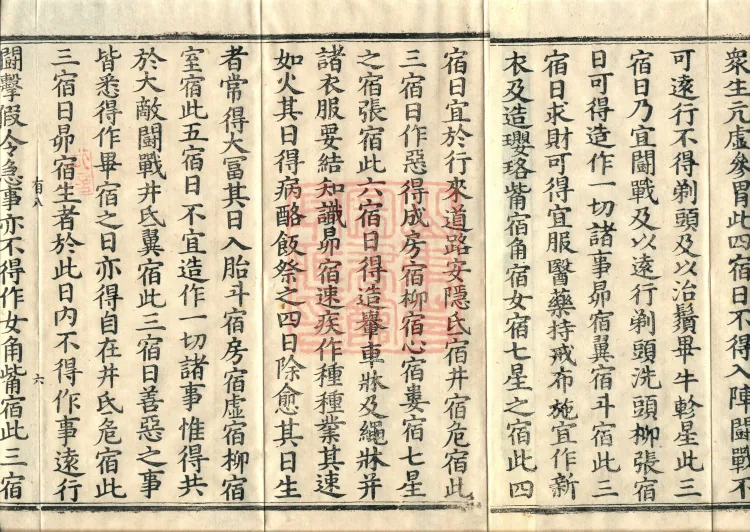 衆生元虛參胃此四宿日不得入陣鬪戰不
可遠行不得剃頭及以治鬚畢牛軫星此三
宿日乃宜鬪戰及以遠行剃頭洗頭柳張宿
日可得造作一切諸事昴宿翼宿斗宿此三
宿日求財可得宜服醫藥持戒布施宜作新
衣及造瓔珞觜宿角宿女宿七星之宿此四
宿日宜於行來道路安隱氐宿井宿危宿此
三宿日作惡得成房宿柳宿心宿婁宿七星
之宿張宿此六宿日得造轝車牀及繩牀并
諸衣服要結知識昴宿速疾作種種業其速
如火其日得病酪飯祭之四日除愈其日生
者常得大冨其日入胎斗宿房宿虛宿柳宿
室宿此五宿日不宜造作一切諸事惟得共
於大敵鬪戰井氐翼宿此三宿日善惡之事
皆悉得作畢宿之日亦得自在井氐危宿此
三宿日昴宿生者於此日內不得作事遠行
有八
六
鬪擊假令急事亦不得作女角觜宿此三宿